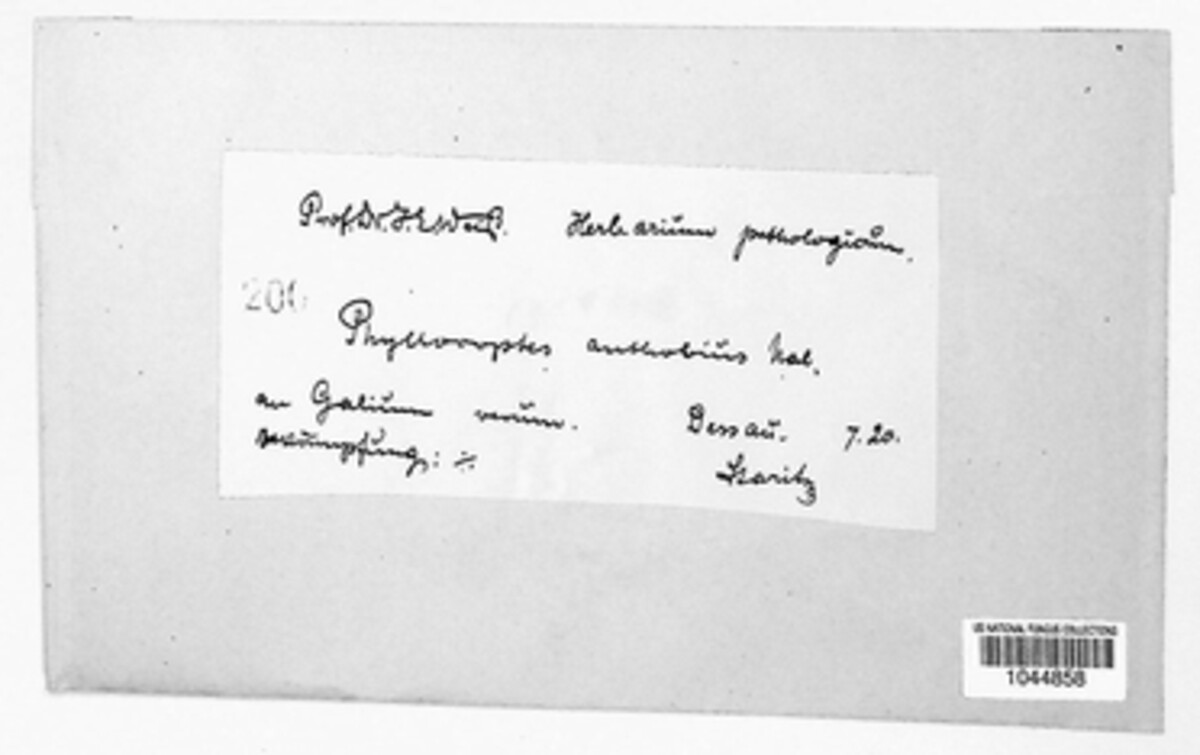 Prof. Dr. J. E. Weiß. Herbarium pathologicum.
200
Phyllocoptes anthobius Nal.
an Galium verum. Dessau. 7. 20.
Bekämpfung: ÷ Staritz
US NATIONAL FUNGUS COLLECTIONS
1044858